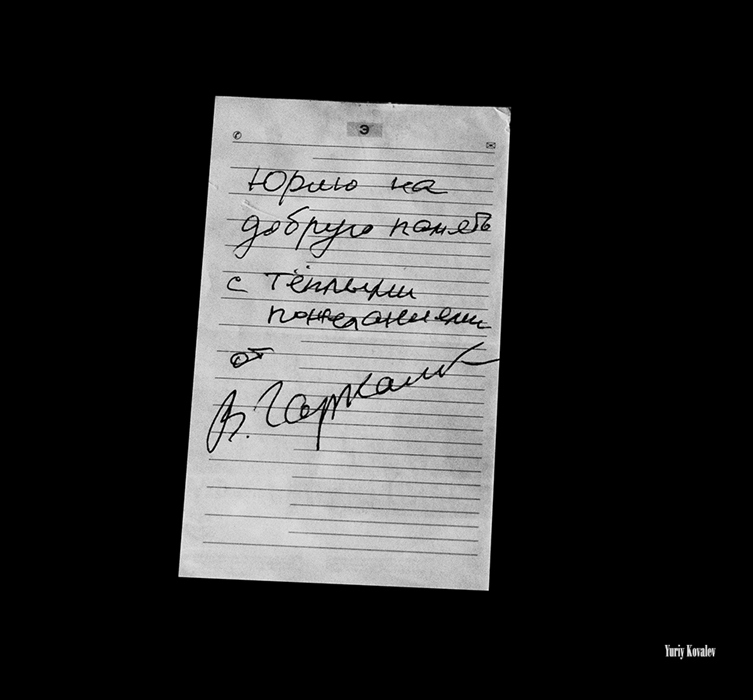 Э
Юрию на
добрую память
с тёплыми
пожеланиями
от
В. Гаркалин
Yuriy Kovalev